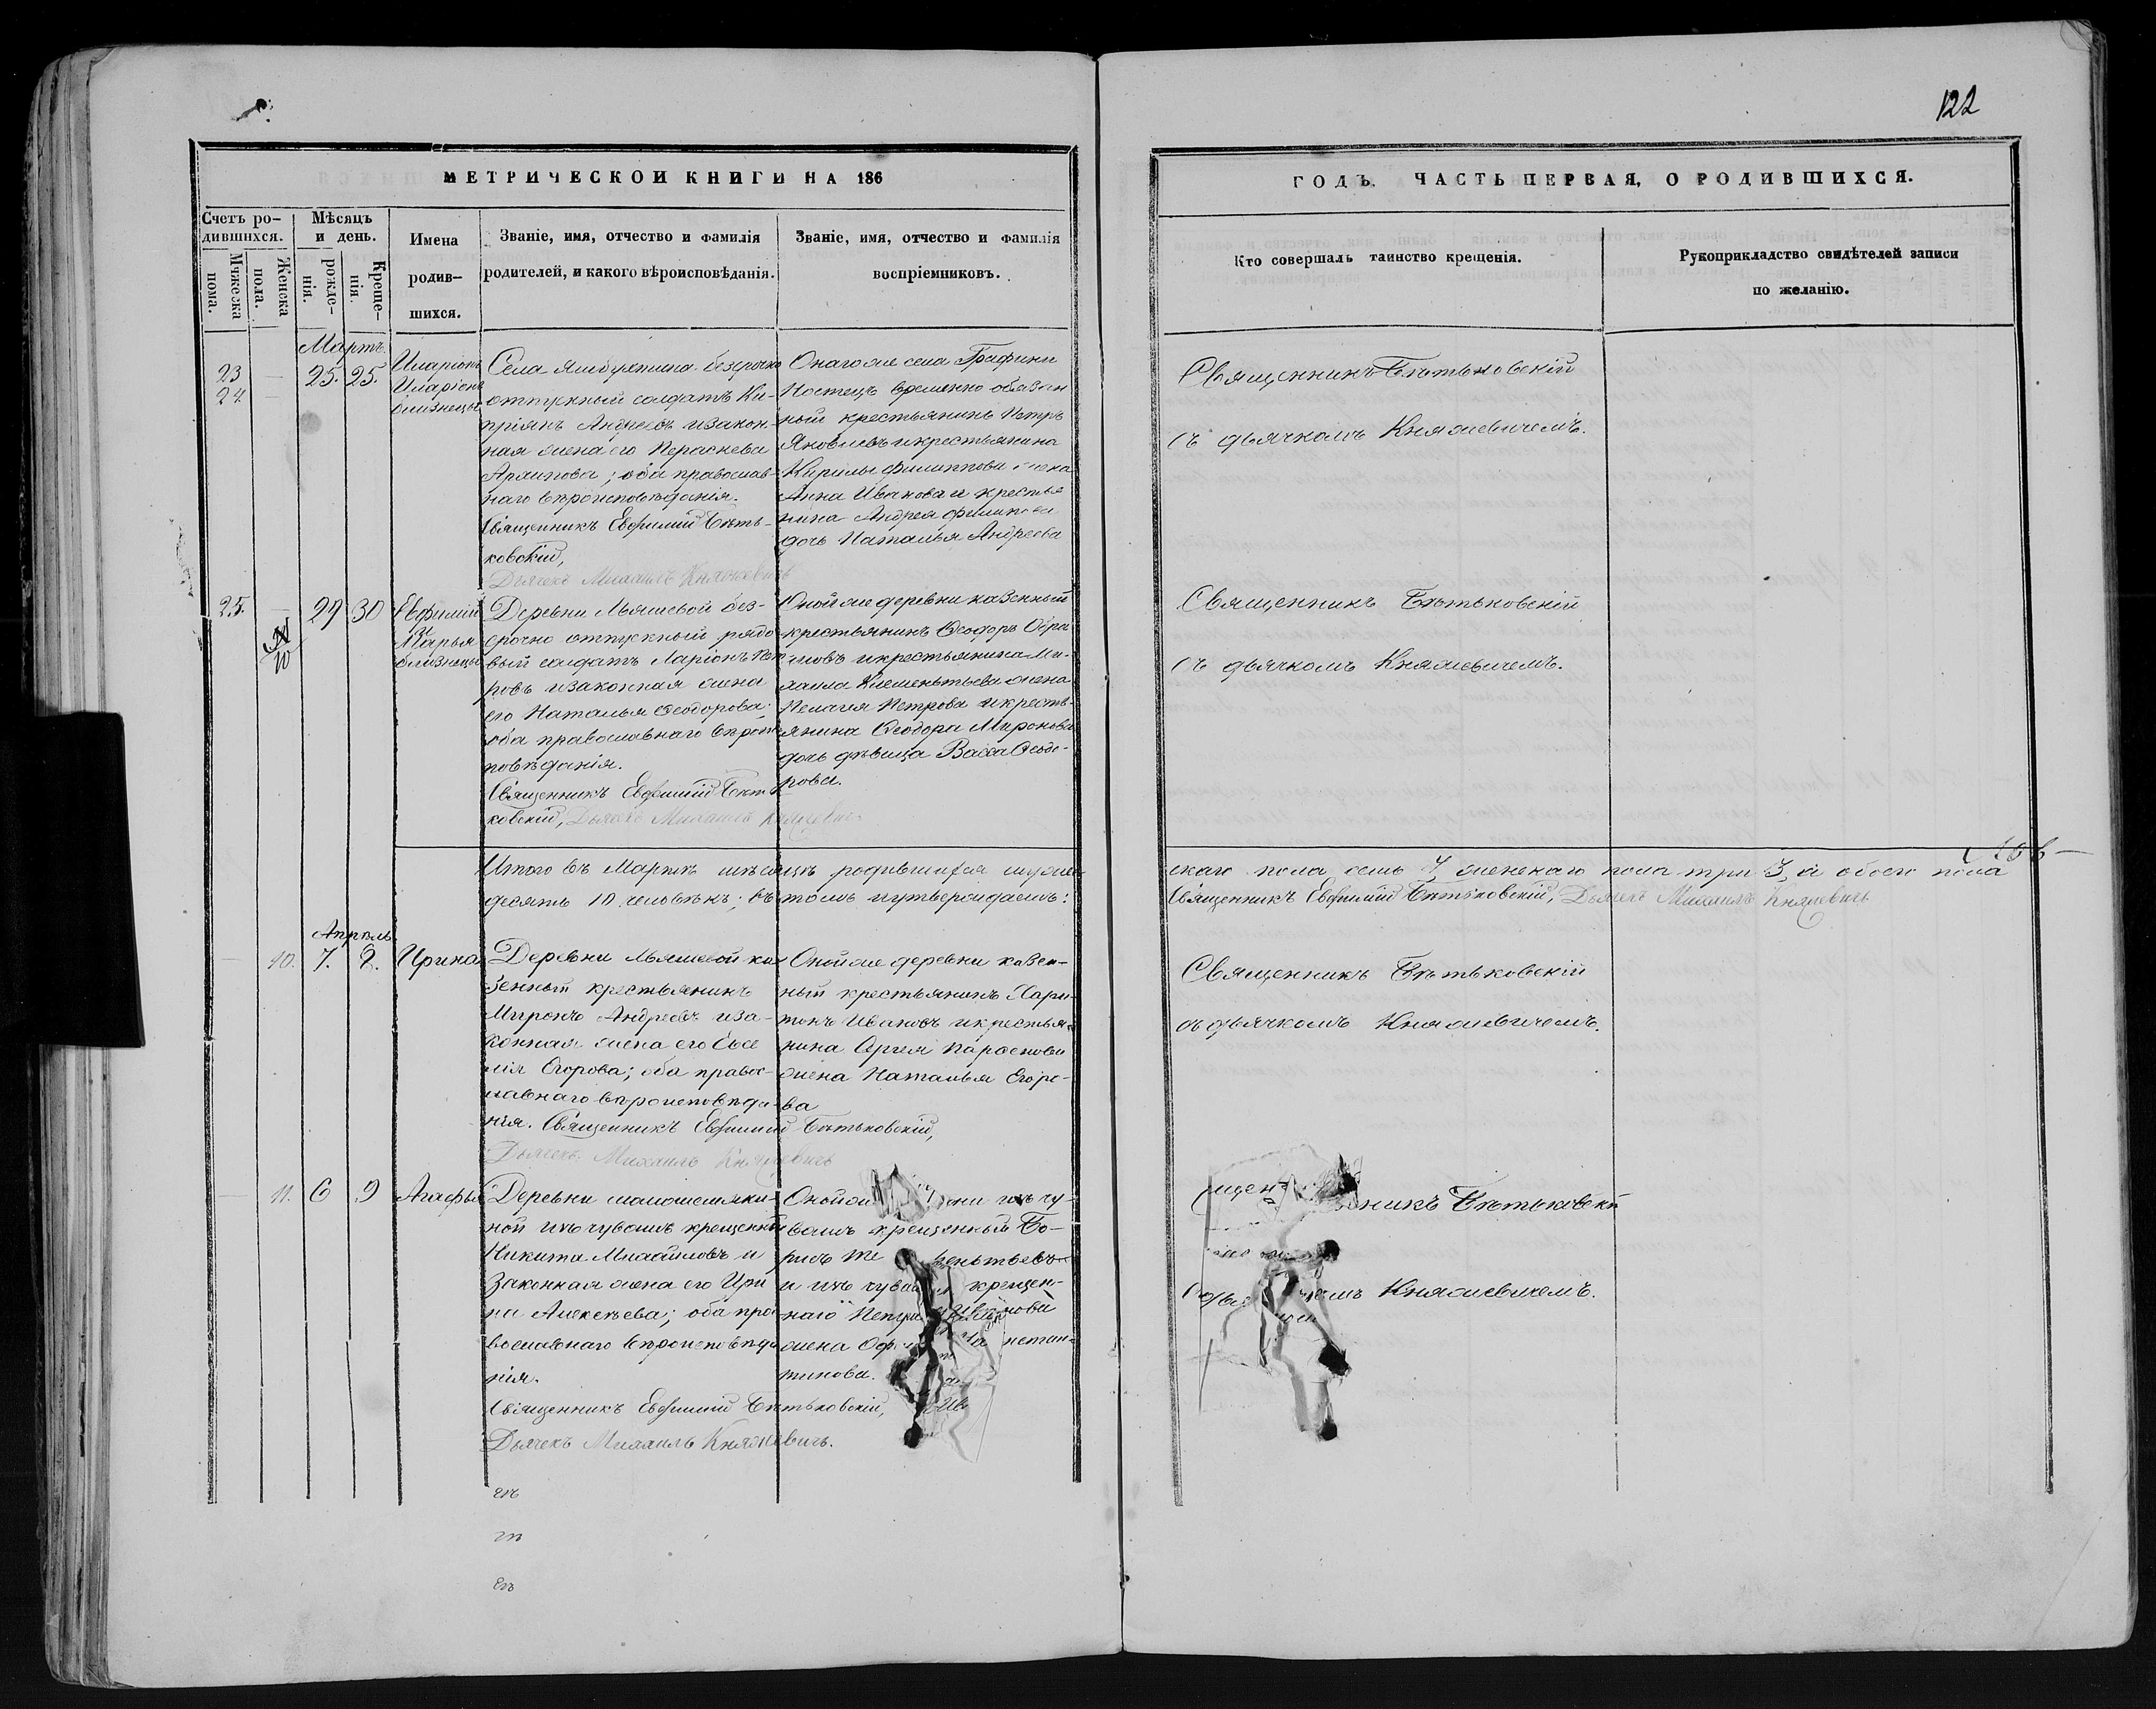 122
МЕТРИЧЕСКОЙ КНИГИ НА 186
Счетъ родившихся.
Мѣсяцъ и день.
Мужеска пола.
Женска пола.
рожденія.
Крещенія.
Имена родившихся.
Званіе, имя, отчество и фамилія
родителей, и какого вѣроисповѣданія.
Званіе, имя, отчество и фамилія
воспріемниковъ.
ГОДЪ. ЧАСТЬ ПЕРВАЯ, О РОДИВШИХСЯ.
Кто совершалъ таинство крещенія.
Рукоприкладство свидѣтелей записи
по желанію.
Мартъ.
23 — 25. 25.
24. —
Иларіонъ
Иларіонъ
близнецы
Села безсрочно
отпускный солдатъ Ки-
пріянъ Андреевъ и закон-
ная жена его
Архипова; оба православ-
наго вѣроисповѣданія.
Священникъ Евфимій Бѣть-
ковскій,
Дьячекъ Михаилъ Княжевичъ
Онаго же села Графини
временно обязан
ный крестьянинъ Петръ
Яковлевъ и крестьянина
Кирилы Филиппова жена
Анна Иванова и крестья
нина Андрея Филипова
дочь Наталья Андреева
Священникъ Бѣтьковскій
съ дьячкомъ Княжевичемъ.
25. — 29 30
10
Евфимій
и
Марья
близнецы
Деревни Мьяшевой без-
срочно отпускный рядо
вый солдатъ Ларіонъ Пет
ровъ и законная жена
его Наталья Ѳеодорова;
оба православнаго вѣроис
повѣданія.
Священникъ Евфимій Бѣть
ковскій, Дьячекъ Михаилъ Княжевичъ
Оной же деревни казенный
крестьянинъ Ѳеодоръ
и крестьянина Ми-
хаила Клементьева жена
Пелагея Петрова и кресть-
янина Ѳеодора Миронова
дочь дѣвица Васса Ѳеодо-
рова.
Священникъ Бѣтьковскій
съ дьячкомъ Княжевичемъ.
Итого въ Мартѣ мѣсяцѣ родившихся муже
скаго пола семь 7, женскаго пола три 3, а обоего пола
десять 10 человѣкъ; въ томъ и утверждаемъ:
Священникъ Евфимій Бѣтьковскій, Дьячекъ Михаилъ Княжевичъ
Апрѣль
— 10. 7. 8. Ирина
Деревни Мьяшевой ка
зенный крестьянинъ
Миронъ Андреевъ и за-
конная жена его Евсе
нія Егорова; оба правос-
лавнаго вѣроисповѣда-
нія. Священникъ Евфимій Бѣтьковскій,
Дьячекъ Михаилъ Княжевичъ
Оной же деревни казен-
ный крестьянинъ Хари-
тонъ Ивановъ и крестья-
нина Сергея
жена Наталья Егоро-
ва
Священникъ Бѣтьковскій
съ дьячкомъ Княжевичемъ.
— 11. 6 9 Агафья
Деревни
ной изъ чувашъ крещенный
Никита Михайловъ и
законная жена его Ири
на Алексѣева; оба пра
вославнаго вѣроисповѣда
нія.
Священникъ Евфимій Бѣтьковскій,
Дьячекъ Михаилъ Княжевичъ.
изъ чу-
вашъ крещенный Бо-
рисъ
и изъ крещен-
наго
жена
тинова.
никъ Бѣтьковскій
Княжевичемъ.